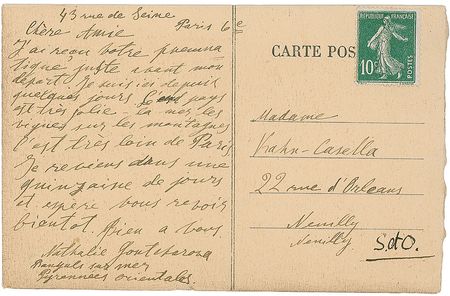 43 rue de Seine
Paris 6e
Chère Amie
J'ai reçu votre pneuma
tique juste avant mon
départ. Je suis ici depuis
quelques jours Le pays
est très jolie - la mer les
vignes sur les montagnes
C'est très loin de Paris
Je reviens dans une
quinzaine de jours
et espère vous revoir
bientot. Bien a vous.
Nathalie Gontcharova
Banyuls sur mer
Pyrennées orientales.
CARTE POS
RÉPUBLIQUE FRANÇAISE
10c
Madame
Kahn-Casella
22 rue d'Orleans
Neuilly
Neuilly
S.et O.